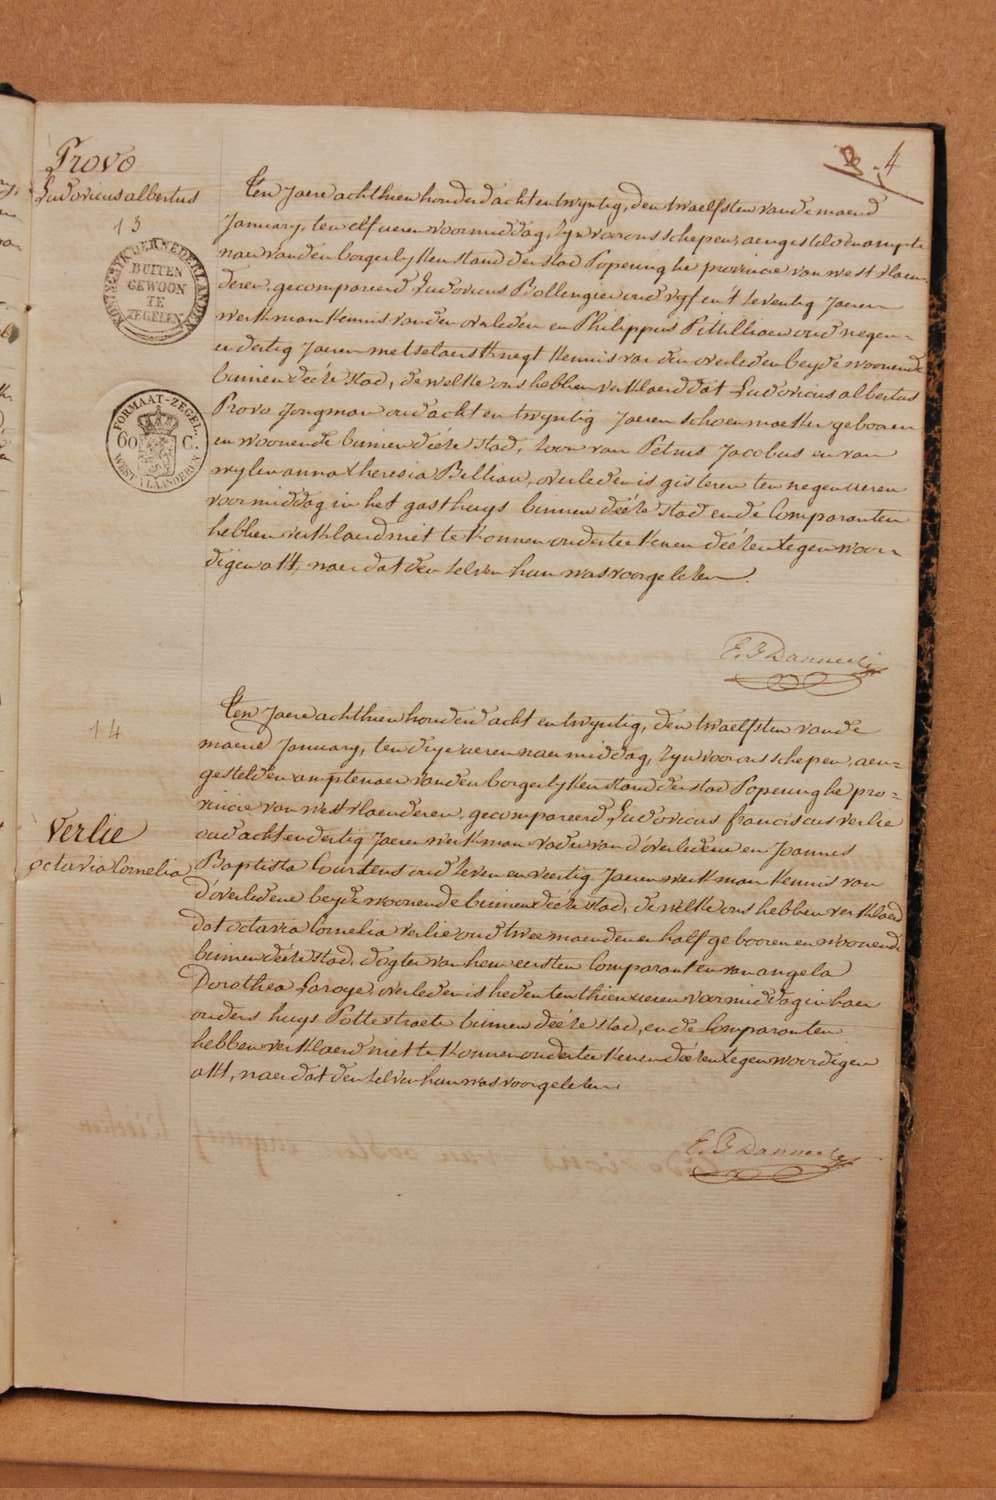 4
Provo
Ludovicus albertus
13
KONINGRYK DER NEDERLANDEN
BUITEN
GEWOON
TE
ZEGELEN
FORMAAT-ZEGEL
60 C.
WEST VLAANDEREN
Ten Jaere achthien honderd acht en twyntig, den twaelfsten van de maend
January, ten elf ueren voormiddag, Zyn voor ons schepen, aengesteld en ampte
naer van den borgerlyken stand der stad Poperinghe provincie van west vlaen-
deren, gecompareerd Ludovicus Bollengier oud vyf en t'seventig Jaeren
werkman kennis van den overleden en Philippus Pitillion oud negen-
en dertig Jaeren metselaersknegt kennis van den overleden beyde woonende
binnen deéze stad, de welke ons hebben verklaerd dat Ludovicus albertus
Provo Jongman oud acht en twyntig Jaeren schoenmaeker gebooren
en woonende binnen deéze stad, zoon van Petrus Jacobus en van
wylen anna theresia Billiau, overleden is gisteren ten negen ueren
voormiddag in het gasthuys binnen deéze stad en de Comparanten
hebben verklaerd niet te konnen onderteekenen deézen tegenwoor-
digen akt, naer dat den zelven hun was voorgelezen.
E. J. Danneel
14
Ten Jaere achthien honderd acht en twyntig, den twaelfsten van de
maend January, ten drye ueren naer middag, Zyn voor ons schepen, aen-
gestelden amptenaer van den borgerlyken stand der stad Poperinghe pro-
vincie van west vlaenderen, gecompareerd Ludovicus franciscus verlie
oud acht en dertig Jaeren werkman vader van d'overledene en Joannes
Verlie
octavia Cornelia
Baptista Courtens oud zeven en veertig Jaeren werkman kennis van
d'overledene beyde woonende binnen deéze stad, de welke ons hebben verklaerd
dat octavia Cornelia verlie oud twee maenden en half gebooren en woonende
binnen deéze stad, dogter van hem eersten Comparant en van angela
Dorothea Laroye, overleden is heden ten thien ueren voormiddag in haer
ouders huys Pottestraete binnen deéze stad, en de Comparanten
hebben verklaerd niet te konnen onderteekenen deézen tegenwoordigen
akt, naer dat den zelven hun was voorgelezen.
E. J. Danneel